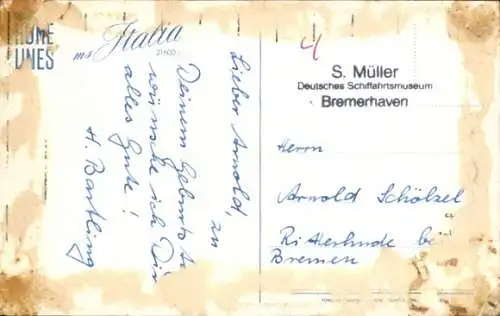 HOME
LINES
ms Italia
Lieber Arnold,
zu
Deinem Geburtstag
wünsche ich Dir
alles Gute!
H. Bartling
4
S. Müller
Deutsches Schiffahrtsmuseum
Bremerhaven
Herrn
Arnold Schölzel
Ritterhude be
Bremen